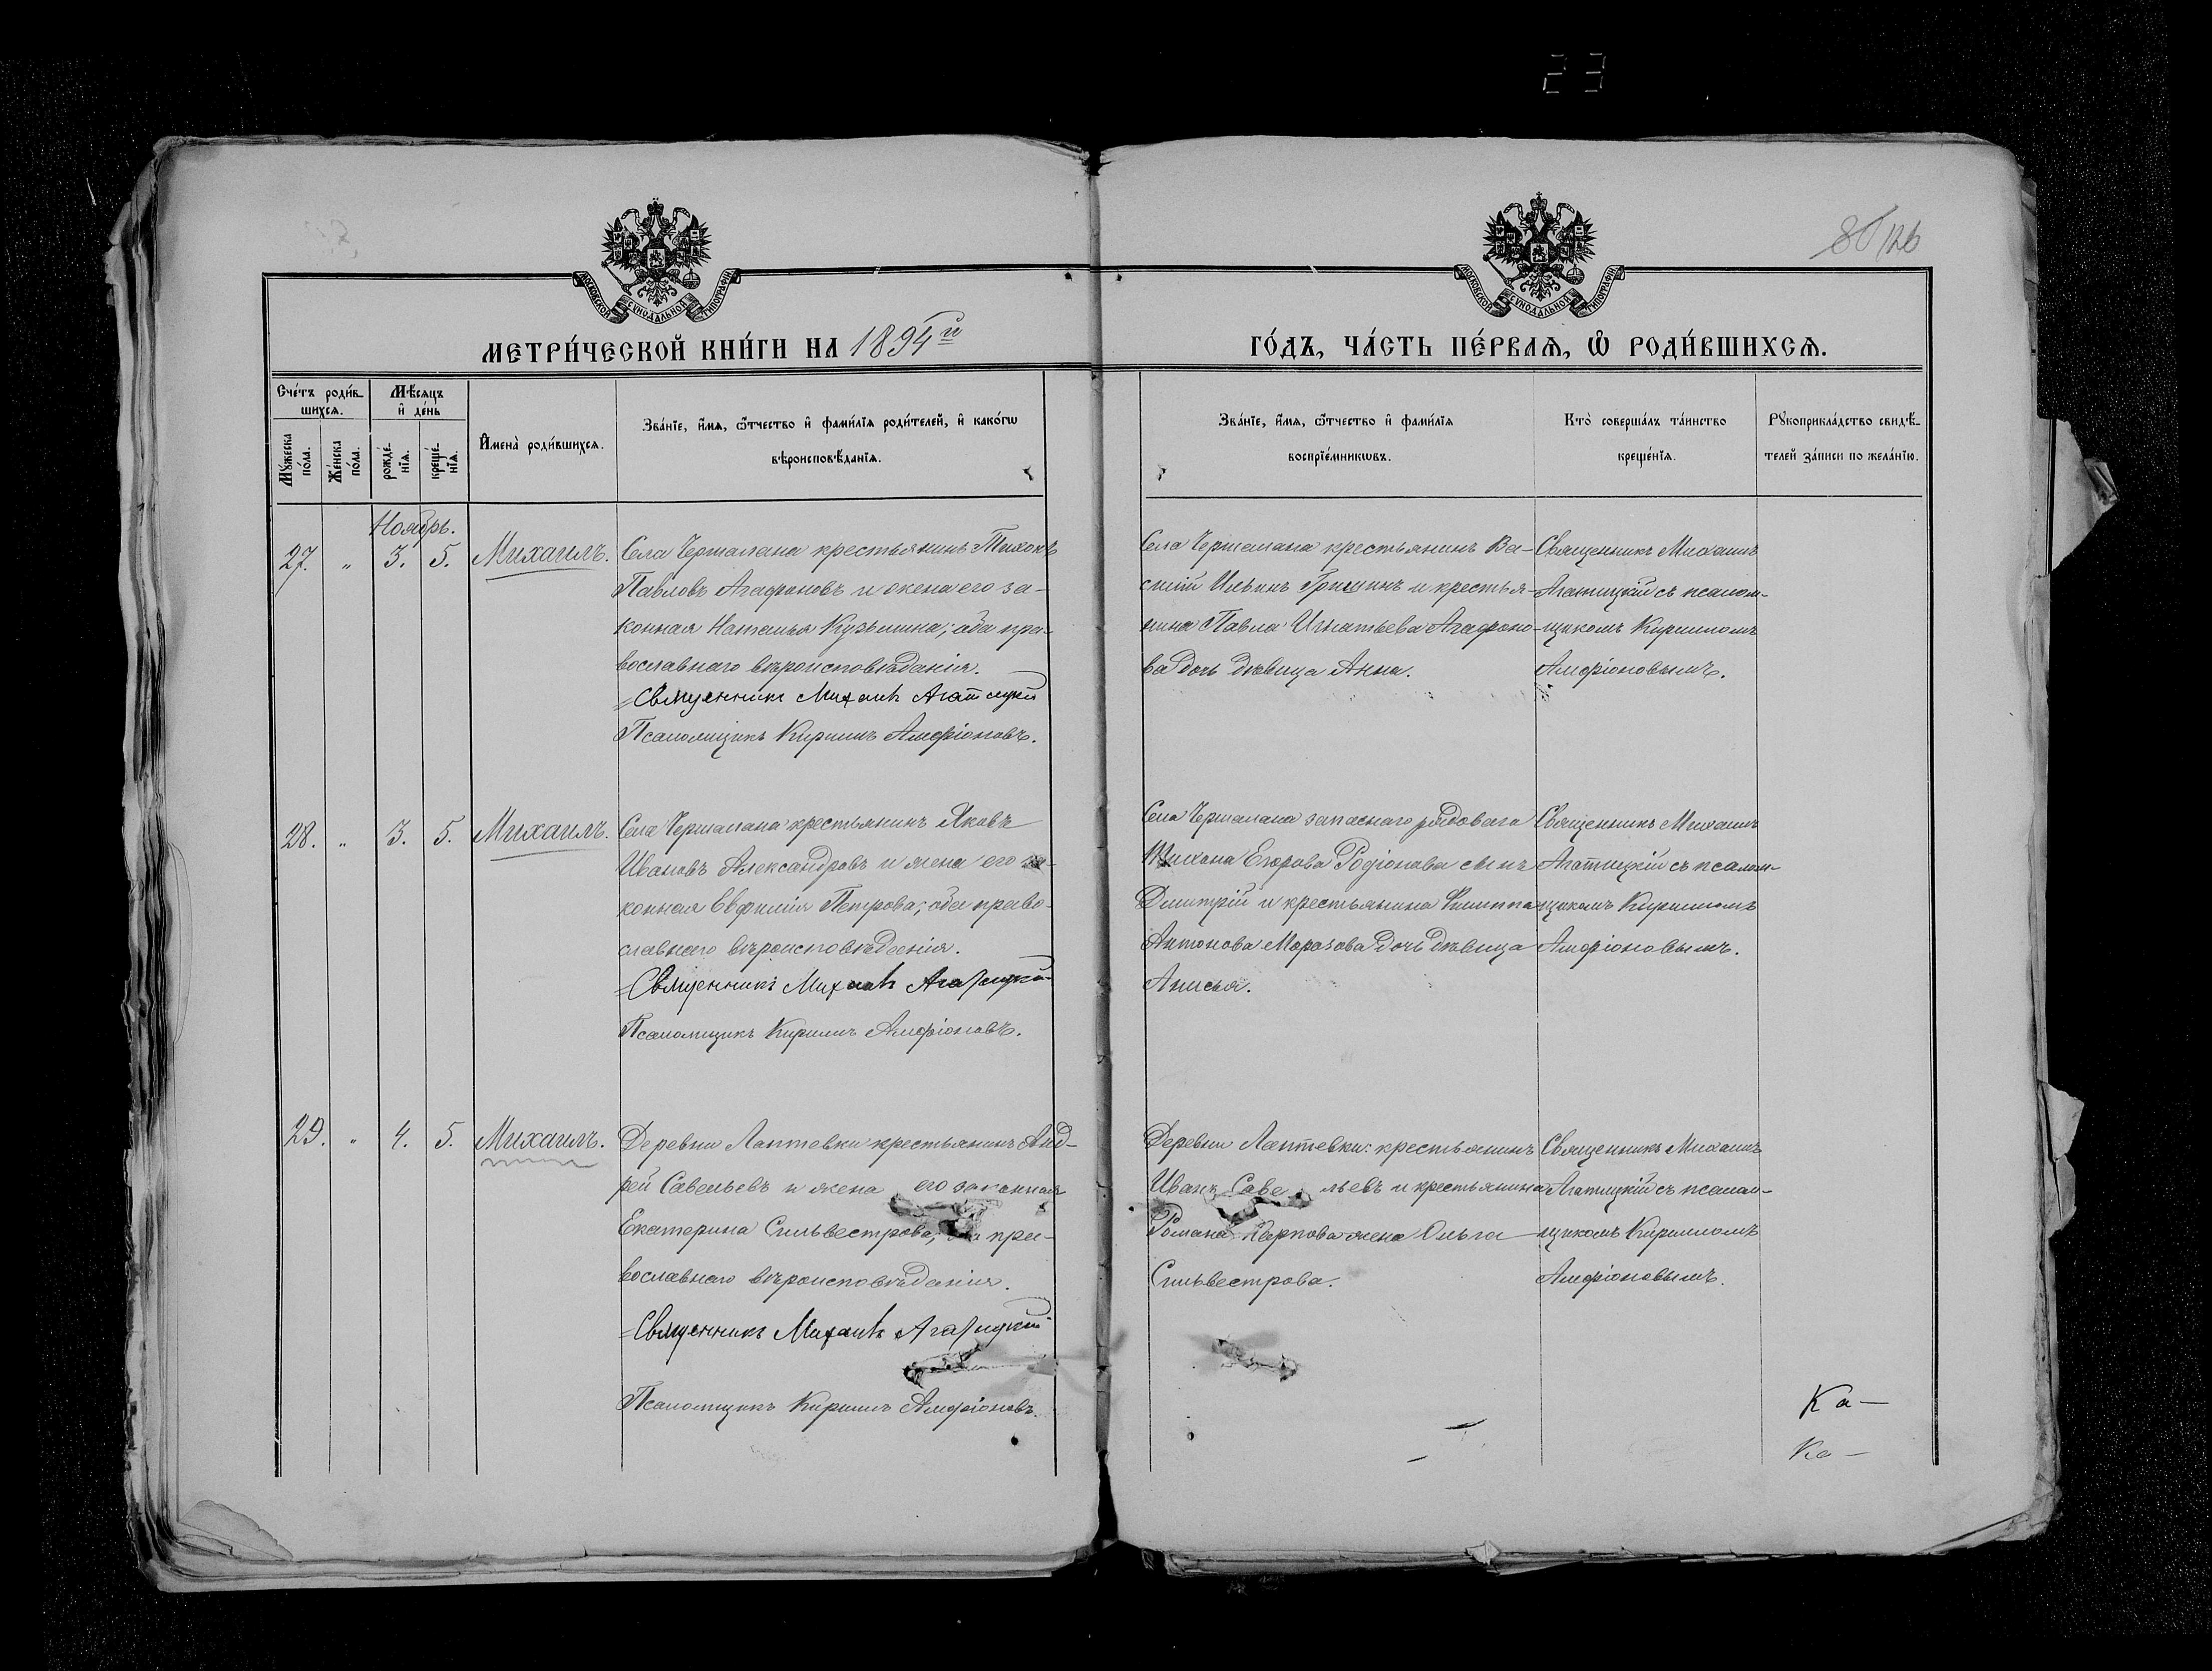 23
80/126
МОСКОВСКОЙ СѴНОДАЛЬНОЙ ТИПОГРАФІИ
МОСКОВСКОЙ СѴНОДАЛЬНОЙ ТИПОГРАФІИ
МЕТРИ́ЧЕСКОЙ КНИ́ГИ НА 1894й
ГО́ДЪ, ЧА́СТЬ ПЕ́РВАѦ, Ѽ РОДИ́ВШИХСѦ.
Сче́тъ роди́вшихсѧ.
Мꙋ́жеска по́ла.
Же́нска по́ла.
Мѣ́сѧцъ и҆ де́нь
рожде́нїѧ.
креще́нїѧ.
И҆мена̀ роди́вшихсѧ.
Зва́нїе, и҆́мѧ, ѻ҆́тчество и҆ фами́лїѧ роди́телей, и҆ како́гѡ
вѣроисповѣ́данїѧ.
Зва́нїе, и҆́мѧ, ѻ҆́тчество и҆ фами́лїѧ
воспрїе́мникѡвъ.
Кто̀ соверша́лъ та́инство
креще́нїѧ.
Рꙋкоприкла́дство свидѣ́-
телей за́писи по жела́нїю.
Ноябрь.
27. " 3. 5. Михаилъ.
Села Чермалана крестьянинъ Тихонъ
Павловъ Агафоновъ и жена его за-
конная Наталья Кузьмина; оба пра-
вославнаго вѣроисповѣданія.
Священникъ Михаилъ Агатицкій
Псаломщикъ Кириллъ Амфіоновъ.
Села Чермалана крестьянинъ Ва-
силій Ильинъ Гришинъ и крестья-
нина Павла Игнатьева Агафоно-
ва дочь дѣвица Анна.
Священникъ Михаилъ
Агатицкій съ псалом-
щикомъ Кирилломъ
Амфіоновымъ.
28. " 3. 5. Михаилъ.
Села Чермалана крестьянинъ Яковъ
Ивановъ Александровъ и жена его за-
конная Евфимія Петрова; оба право-
славнаго вѣроисповѣданія.
Священникъ Михаилъ Агатицкій
Псаломщикъ Кириллъ Амфіоновъ.
Села Чермалана запаснаго рядоваго
Тихона Егорова Родіонова сынъ
Димитрій и крестьянина Филиппа
Антонова Морозова дочь дѣвица
Анисья.
Священникъ Михаилъ
Агатицкій съ псалом-
щикомъ Кирилломъ
Амфіоновымъ.
29. " 4. 5. Михаилъ.
Деревни Лаптевки крестьянинъ Анд-
рей Савельевъ и жена его законная
Екатерина Сильвестрова; оба пра-
вославнаго вѣроисповѣданія.
Священникъ Михаилъ Агатицкій
Псаломщикъ Кириллъ Амфіоновъ.
Деревни Лаптевки: крестьянинъ
Иванъ Саве льевъ и крестьянина
Романа Карпова жена Ольга
Сильвестрова.
Священникъ Михаилъ
Агатицкій съ псалом-
щикомъ Кирилломъ
Амфіоновымъ.
Ка-
Ка-